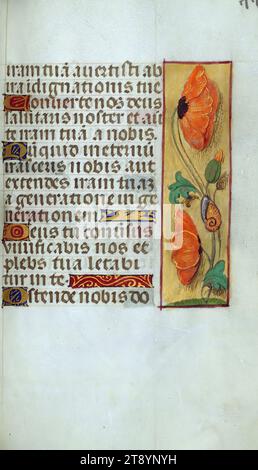 iram tuā auertisti ab
ira idignationis tue
Conuerte nos deus
salutaris noster et au
te iram tuā a nobis.
Nuquid in eternū
irasceris nobis aut
extendes iram tuā
a generatione in ge
nerationem
Deus tu conusus
uiuificabis nos et
plebs tua letabi
tur in te.
Ostende nobis do